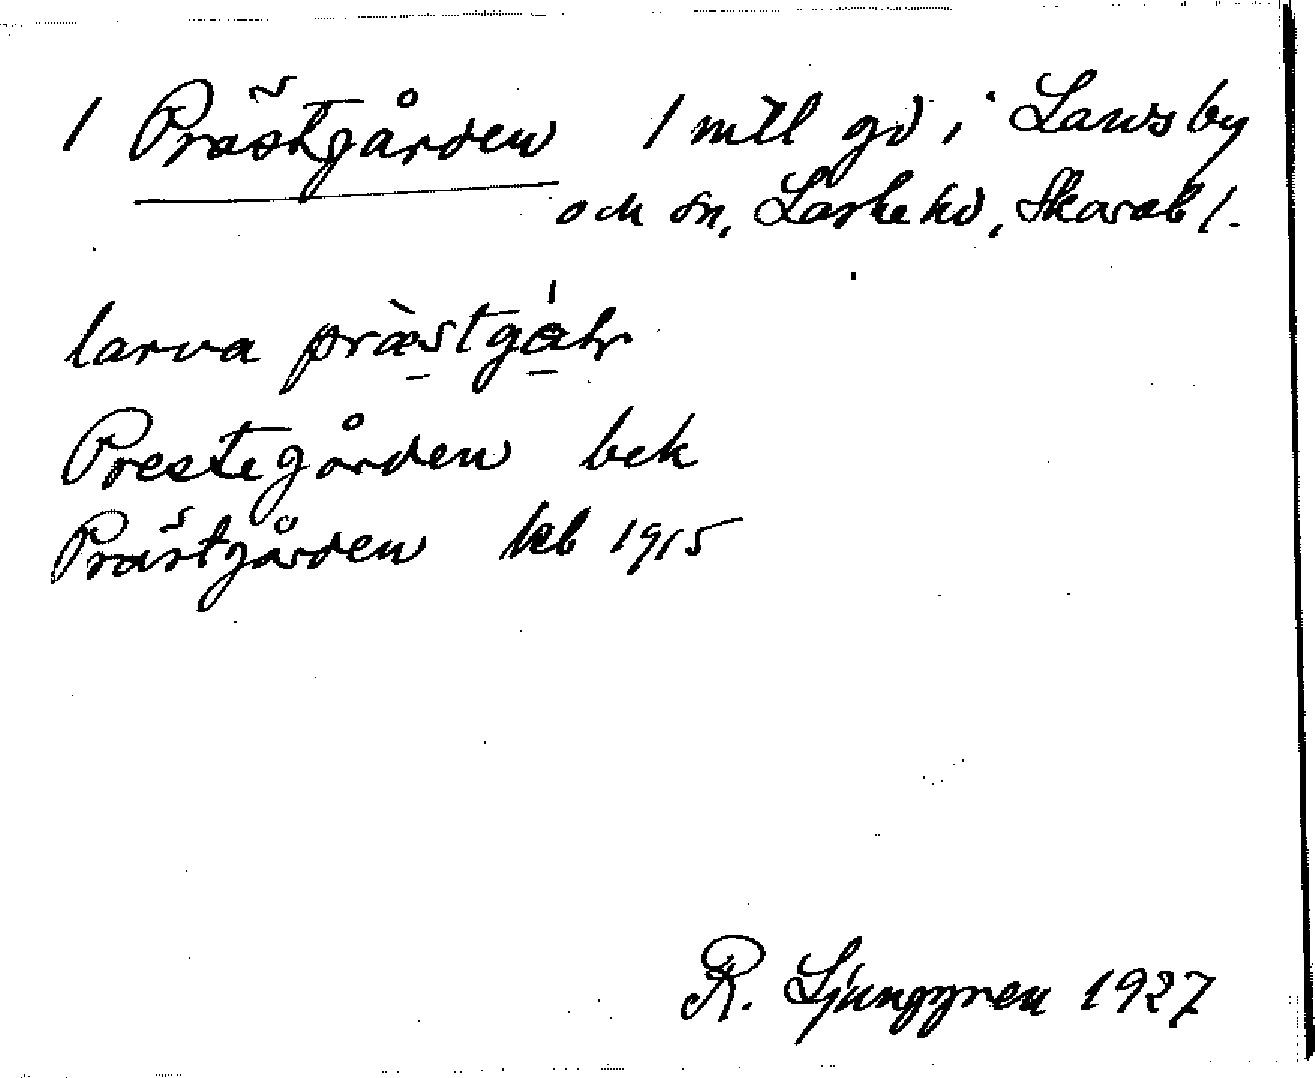 1 Prästgården 1 mtl gd i Larvs by
och sn, Laske hd, Skarab l.
larva præstgåk
Prestegården bek
Prästgården kb 1915
R. Ljunggren 1927